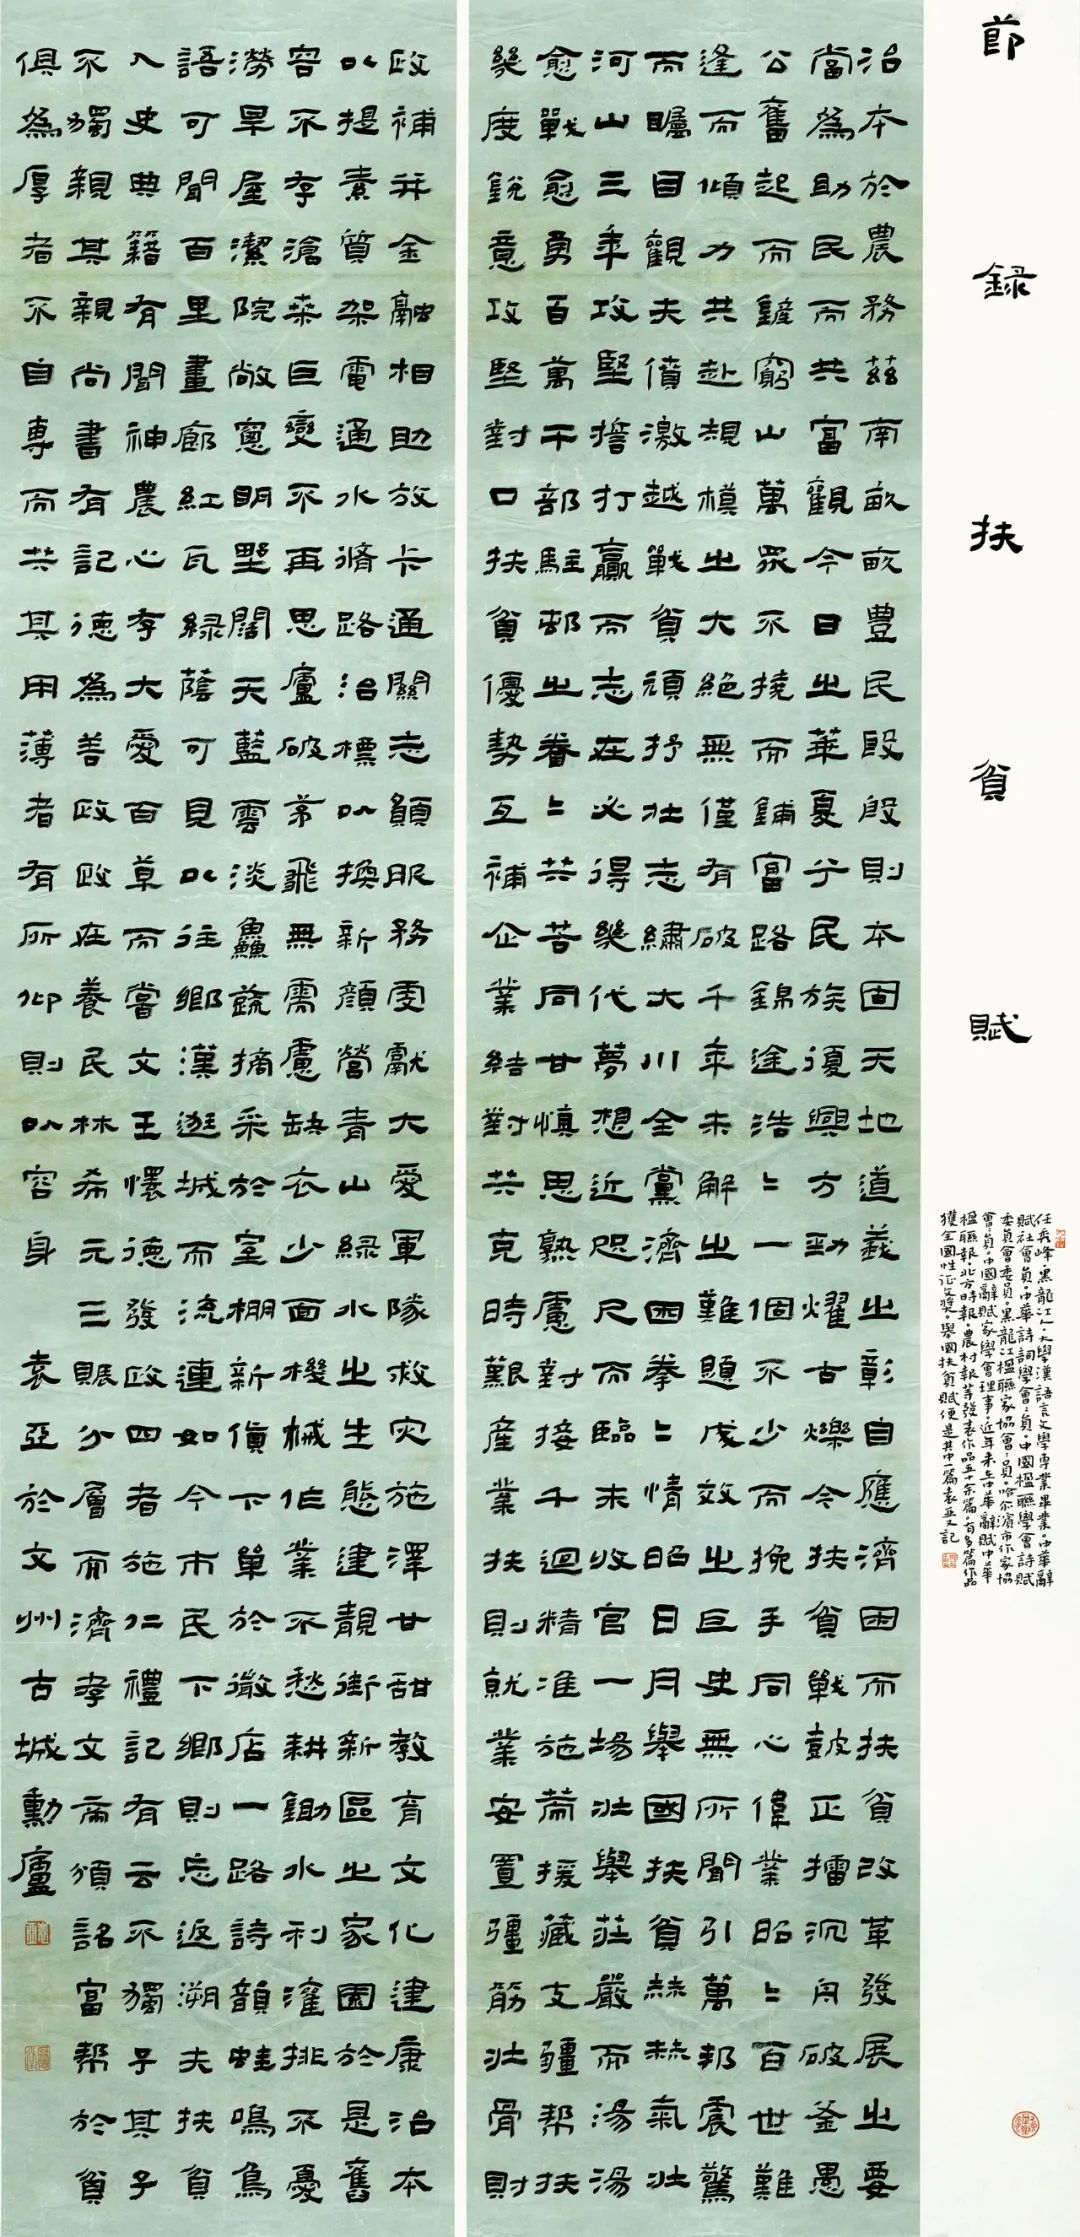 節録扶貧賦
任兵峰，黑龍江人，大學漢語言文學專業畢業，中華辭
賦社會員，中華詩詞學會會員，中國楹聯學會詩賦
委員會委員，黑龍江楹聯家協會會員，哈爾濱市作家協
會會員，中國辭賦家學會理事，近年來在中華辭賦中華
楹聯報，北方時報，農村報等發表作品五十余篇，有多篇作品
獲全國性征文獎，舉國扶貧賦便是其中一篇袁亚文記
治本於農務茲南畝畝豊民殷殷則本固天地道義之彰自應濟困而扶貧改革發展之要
當為助民而共富觀今日之華夏兮民族復興方勁燿古爍今扶貧戰鼓正擂沉舟破釜愚
公舊起而鏟窮山萬眾不撓而鋪富路錦途浩〻一個不少而挽手同心偉業昭〻百世難
逢而傾力共赴規模之大絕無僅有破千年未解之難題成效之巨史無所聞引萬邦震驚
而矚目觀夫僨激越戰貧頑抒壯志繡大川全黨濟困拳〻情昭日月舉國扶貧赫赫氣壯
河山三年攻堅擔打贏而志在必得幾代夢想近咫尺而臨末收官一場壯舉莊嚴而湯湯
愈戰愈勇百萬干部駐邨之眷〻共苦同甘慎思熟慮對接千迴精准施援藏支疆帮扶
幾度銳意攻堅對口扶貧優勢互補企業結對共克時艱產業扶則就業安置彊筋壯骨則
政補并金融相助放卡通關志願服務獻大愛軍隊救災施澤甘甜教育文化建康治本
以提素質架電通水脩路治標以換新顏營青山綠水之生態建靚街新區之家園於是舊
容不存滄桑巨變不再思廬破茅飛無需慮缺衣少面機械作業不愁耕鋤水利灌排不憂
澇旱屋潔院敞窻明墅闊天藍雲淡鱻蔬摘采於室棚新貨下單於微店一路詩韻蛙鳴鳥
語可聞百里畫廊紅瓦綠蔭可見以往鄉漢逛城而流連如今市民下鄉則忘返溯夫扶貧
入史典籍有聞神農心存大愛百草而嘗文王懷德發政四者施仁禮記有云不獨子其子
不獨親其親尚書有記德為善政政在養民林希元三賑分層而濟孝文帝頒詔富帮於貧
俱為厚者不自專而共其用薄者有所仰則以容身 袁亞於文州古城勳廬